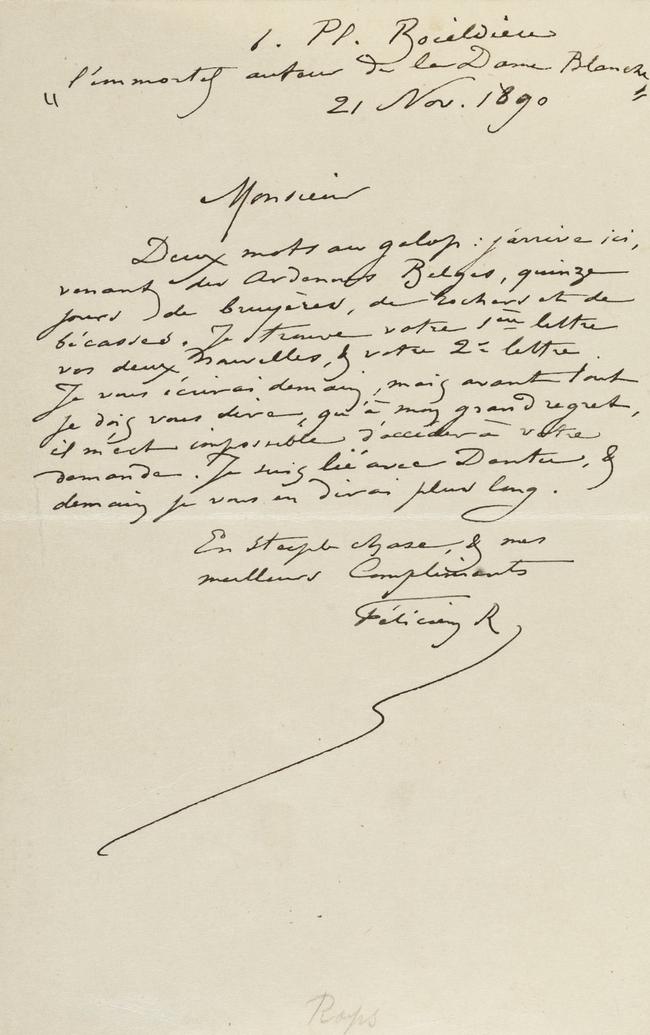 1. Pl. Boieldieu
"l'immortel auteur de la Dame Blanche"
21 Nov. 1890
Monsieur
Deux mots au galop : j'arrive ici,
venant des Ardennes Belges, quinze
jours de bruyères, de rochers et de
bécasses. Je trouve votre 1ère lettre
vos deux Nouvelles, & votre 2e lettre.
Je vous écrirai demain, mais avant tout
je dois vous dire, qu'à mon grand regret,
il m'est impossible d'accéder à votre
demande. Je suis lié avec Dentu, &
demain je vous en dirai plus long.
En steeple chase, & mes
meilleurs Compliments
Félicien R
Rops